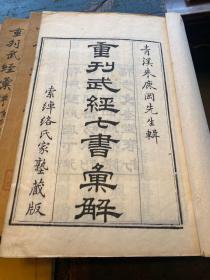 青溪朱鹿岡先生輯
重刊武經七書彙解
索綽絡氏家塾藏版
重刊武經彙解